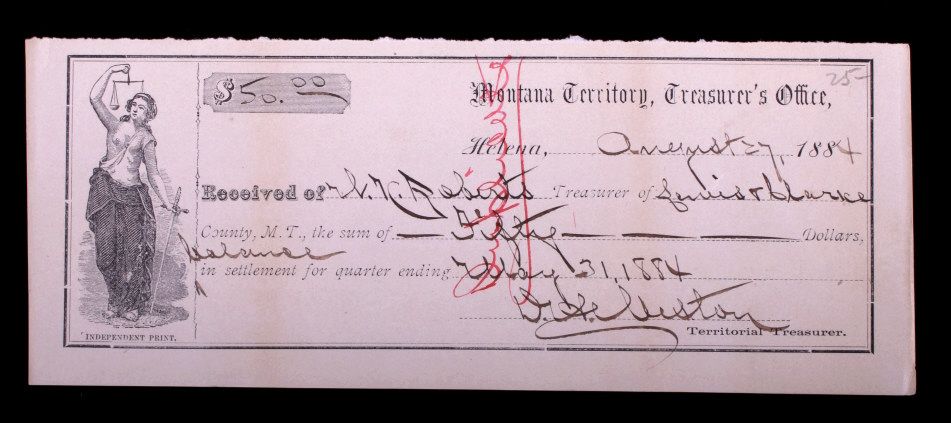 25-
$50.00
Montana Territory, Treasurer's Office,
Helena, August 27, 1884
Received of W. K. Roberts Treasurer of Lewis & Clarke
County, M. T., the sum of — Fifty — Dollars,
balance
in settlement for quarter ending May 31, 1884
D. H. Weston
Territorial Treasurer.
INDEPENDENT PRINT.